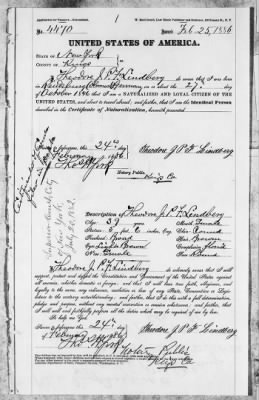 No. 4470
Issued Feb. 25, 1886
UNITED STATES OF AMERICA.
STATE OF New York
COUNTY OF Kings
I, Theodore J. P. F. Lindberg do swear that I was born
in Germany on the 27
October 1846 that I am a NATURALIZED AND LOYAL CITIZEN OF THE
UNITED STATES, and about to travel abroad; and further, that I am the Identical Person
described in the Certificate of Naturalization, herewith presented.
Sworn to before me, this 24th day
of February 1886
Theodore J P F Lindberg
Notary Public,
Kings Co.
Superior Court, City
New York
Description of Theodore J. P. F. Lindberg
Age: 39
Mouth:
Stature: 5 feet
Chin: Round
Forehead: Broad
Hair: Brown
Eyes: Brown
Complexion:
Nose:
Face: Round
I, Theodore J. P. F. Lindberg do solemnly swear that I will
support, protect and defend the Constitution and Government of the United States against
all enemies, whether domestic or foreign; and that I will bear true faith, allegiance,
and loyalty to the same, any ordinance, resolution or law of any State, Convention or Legis-
lature to the contrary notwithstanding; and further, that I do this with a full determination,
pledge and purpose, without any mental reservation or evasion whatsoever; and further, that
I will well and faithfully perform all the duties which may be required of me by law.
So help me God.
Sworn to before me, this 24th day
of February 1886
Theodore J P F Lindberg
Notary Public
Kings Co